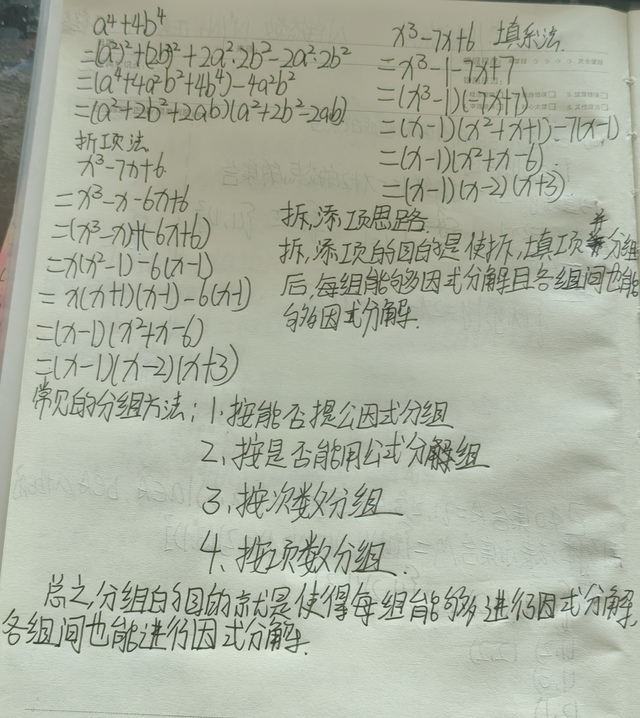 a⁴+4b⁴
=(a²)²+(2b²)²+2a²·2b²-2a²·2b²
=(a⁴+4a²b²+4b⁴)-4a²b²
=(a²+2b²+2ab)(a²+2b²-2ab)
折项法
x³-7x+6
=x³-x-6x+6
=(x³-x)+(-6x+6)
=x(x²-1)-6(x-1)
=x(x+1)(x-1)-6(x-1)
=(x-1)(x²+x-6)
=(x-1)(x-2)(x+3)
x³-7x+6 填乐法.
=x³-1-7x+7
=(x³-1)(-7x+7)
=(x-1)(x²+x+1)-7(x-1)
=(x-1)(x²+x-6).
=(x-1)(x-2)(x+3)
拆,添项思路.
拆,添项的目的是使拆,填项并分组
后,每组能够因式分解且各组间也能
够因式分解.
常见的分组方法:1.按能否提公因式分组
2、按是否能用公式分解组
3、按次数分组
4、按项数分组.
总之,分组的目的就是使得每组能够进行因式分解,
各组间也能进行因式分解.